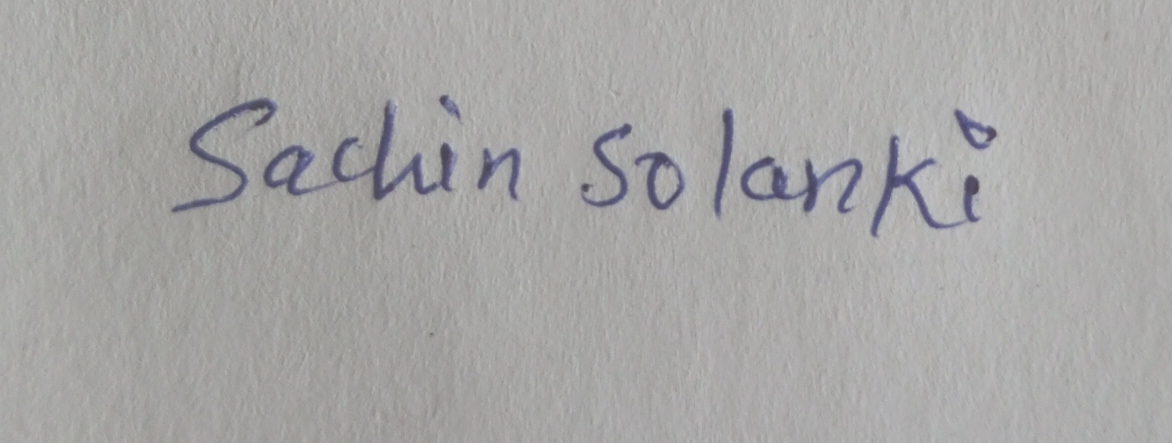 Sachin Solanki